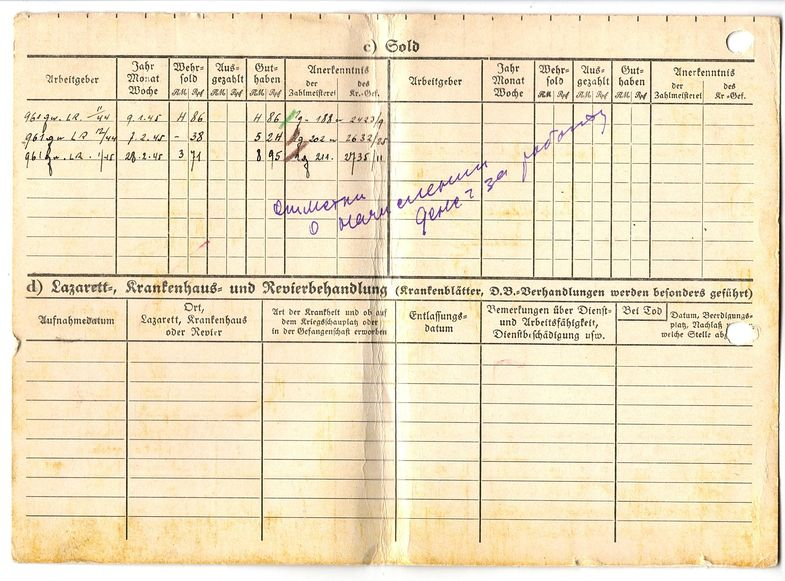 c) Sold
Arbeitgeber Jahr Monat Woche Wehr-sold RM. Rpf Aus-gezahlt RM. Rpf Gut-haben RM. Rpf Anerkenntnis der Zahlmeisterei des Kr.-Gef. Arbeitgeber Jahr Monat Woche Wehr-sold RM. Rpf Aus-gezahlt RM. Rpf Gut-haben RM. Rpf Anerkenntnis der Zahlmeisterei des Kr.-Gef.
LR 11/44 9.1.45 4 86 4 86 188 2423/9
LR 12/44 7.2.45 - 38 5 24 202 2632/25
LR 1/45 28.2.45 3 71 8 95 211. 2735/11
отметки
о начислении
денег за работу
d) Lazarett-, Krankenhaus- und Revierbehandlung (Krankenblätter, D.B.-Verhandlungen werden besonders geführt)
Aufnahmedatum Ort, Lazarett, Krankenhaus oder Revier Art der Krankheit und ob auf dem Kriegsschauplatz oder in der Gefangenschaft erworben Entlassungs-datum Bemerkungen über Dienst- und Arbeitsfähigkeit, Dienstbeschädigung usw. Bei Tod Datum, Beerdigungs-platz, Nachlaß welche Stelle